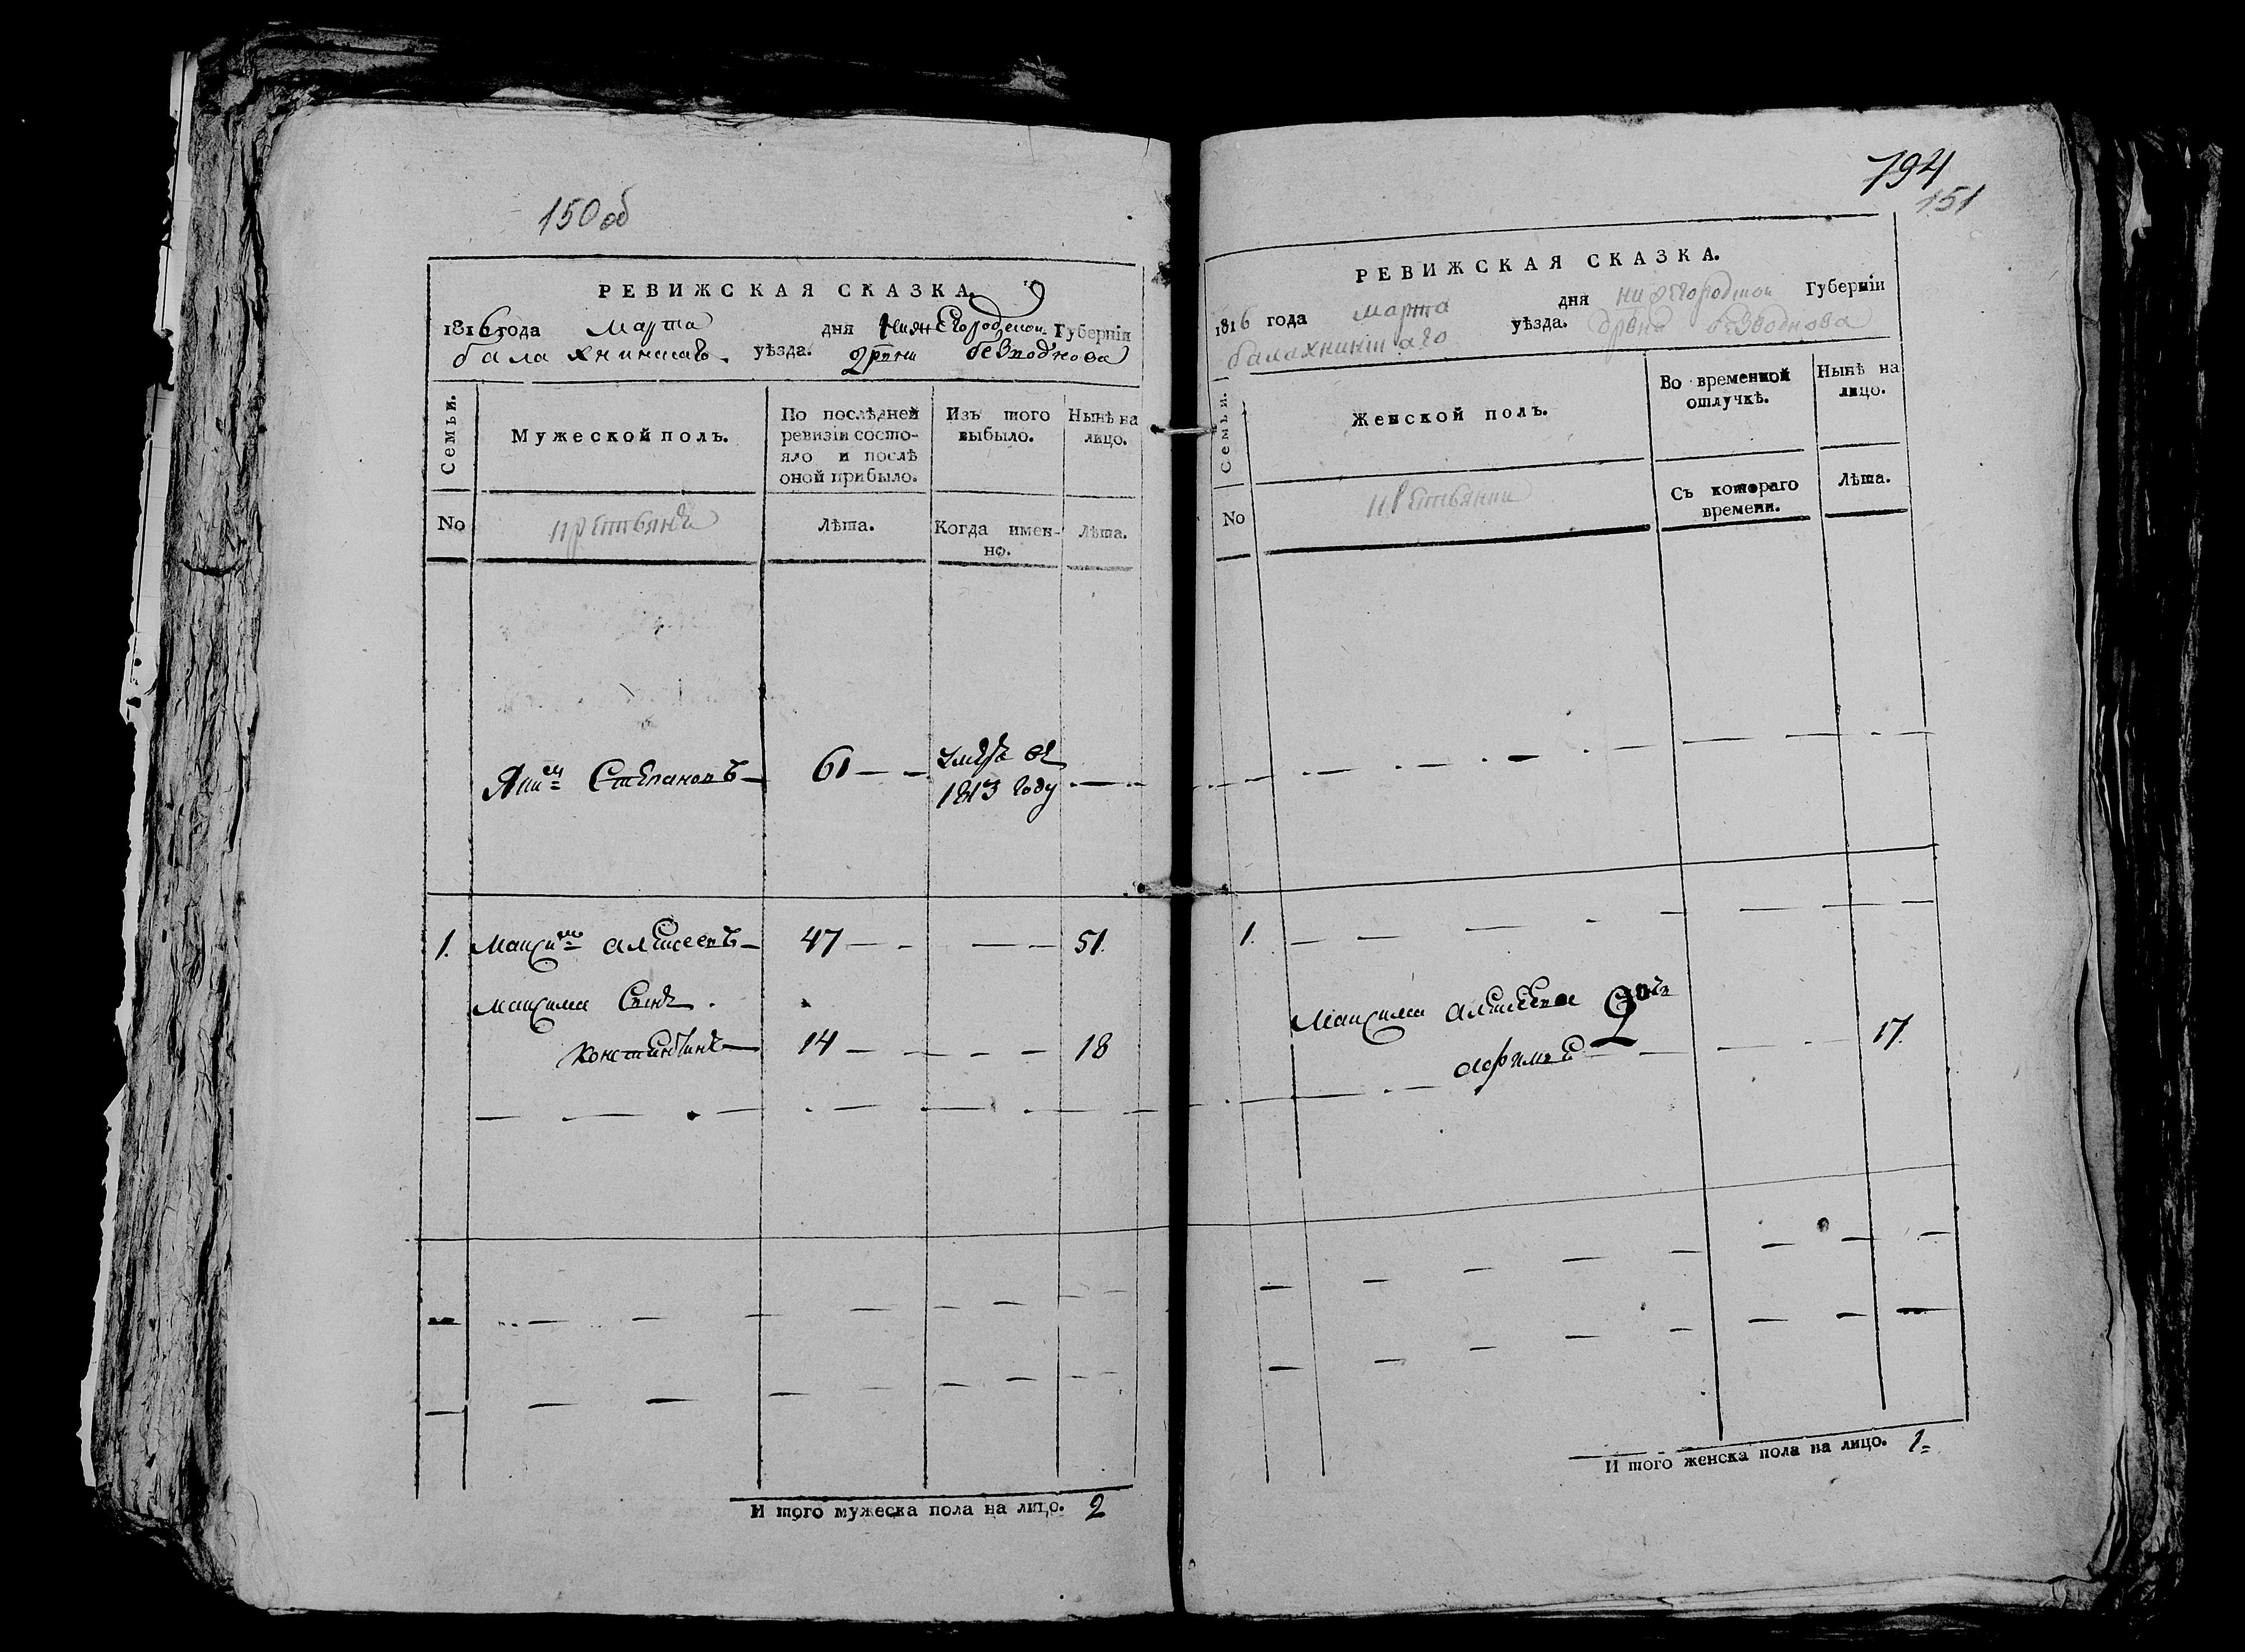 150 об
РЕВИЖСКАЯ СКАЗКА.
1816 года марта дня Нижегородской Губерніи
балахнинскаго уѣзда. дрвни безводнова
Семьи.
Мужеской полъ.
По послѣдней ревизіи состо-
яло и послѣ
оной прибыло.
Изъ того
выбыло.
Нынѣ на
лицо.
No
крестьянѣ
Лѣта.
Когда имен-
но.
Лѣта.
Степановъ 61
умре въ
1813 году
1. Максимъ алексеевъ 47 51.
Максима Сынъ
Константинъ 14 18
И того мужеска пола на лицо. 2
794
151
РЕВИЖСКАЯ СКАЗКА.
1816 года марта дня нижегородской Губерніи
балахнинскаго уѣзда. дрвни безводнова
Семьи.
Женской полъ.
Во временной
отлучкѣ.
Нынѣ на
лицо.
No
крестьянки
Съ котораго
времени.
Лѣта.
1.
Максима алексеева дочь
17.
И того женска пола на лицо. 1